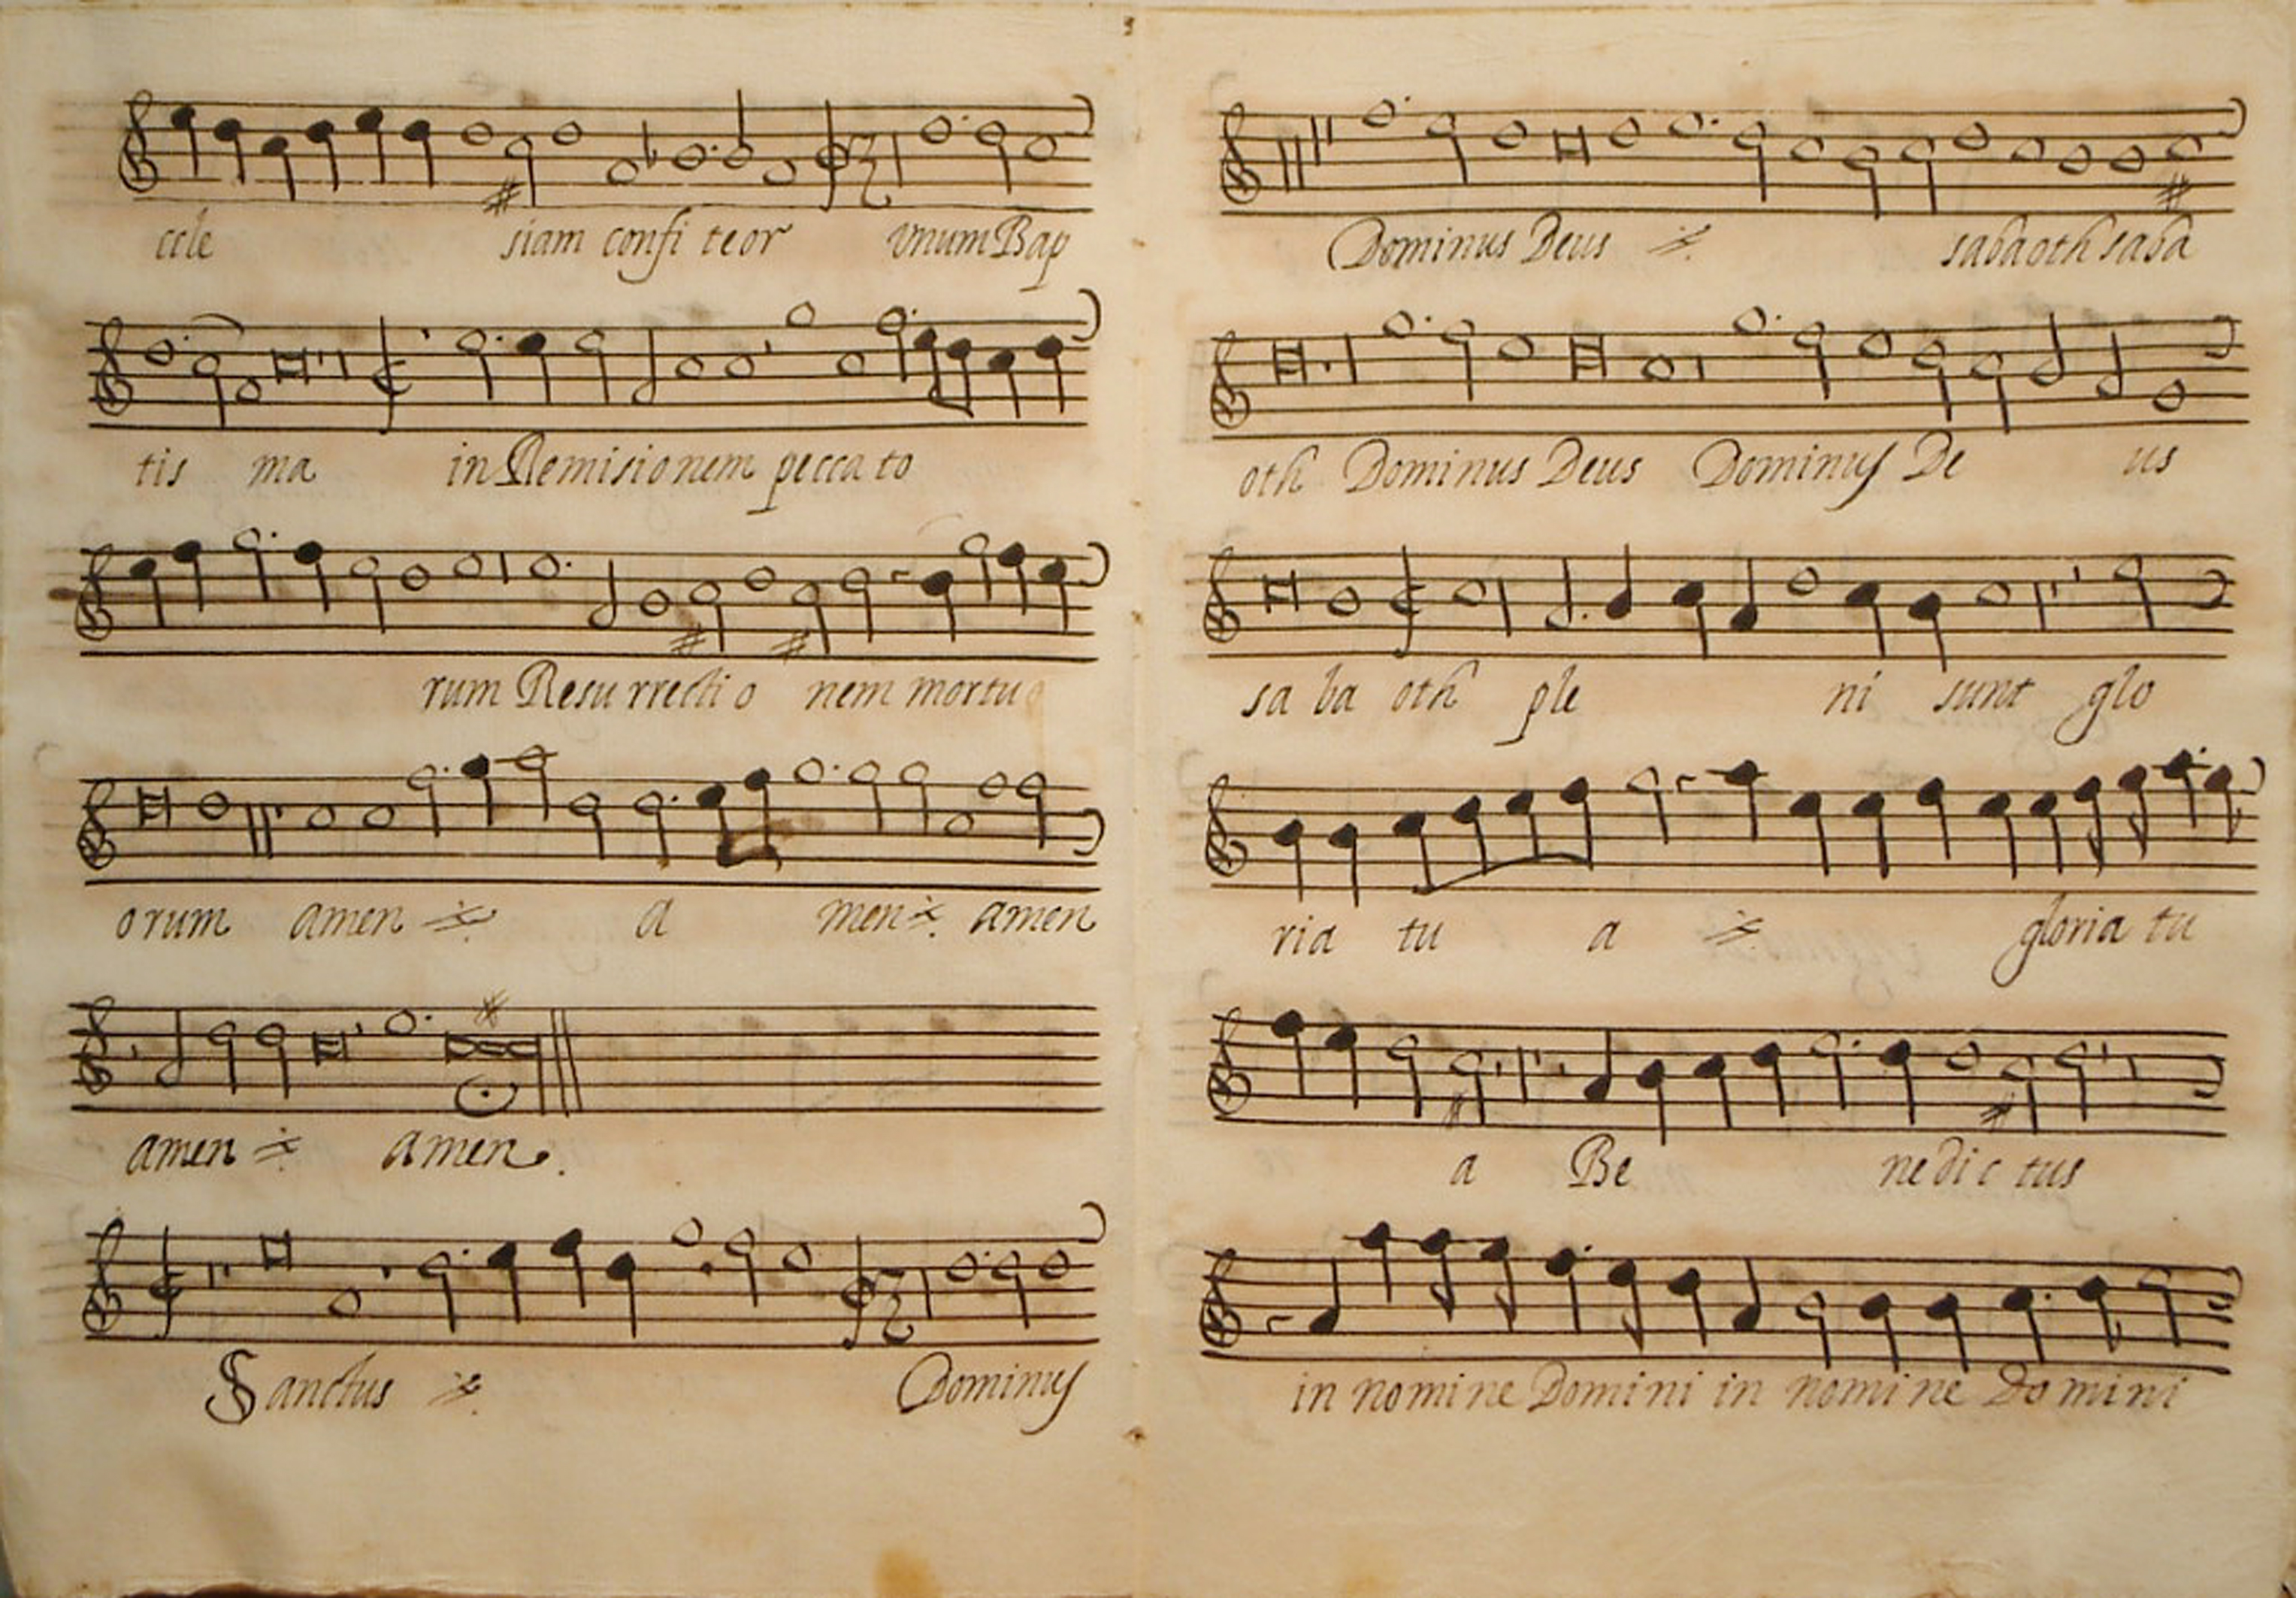 ccle siam confi teor vnum Bap
tis ma in Remisio nem pecca to
rum Resu rrecti o nem mortu o
orum amen a men amen
amen amen.
Sanctus Dominus
Dominus Deus sabaoth saba
oth Dominus Deus Dominus De us
sa ba oth ple ni sunt glo
ria tu a gloria tu
a Be nedic tus
in nomi ne Domini in nomi ne Do mini